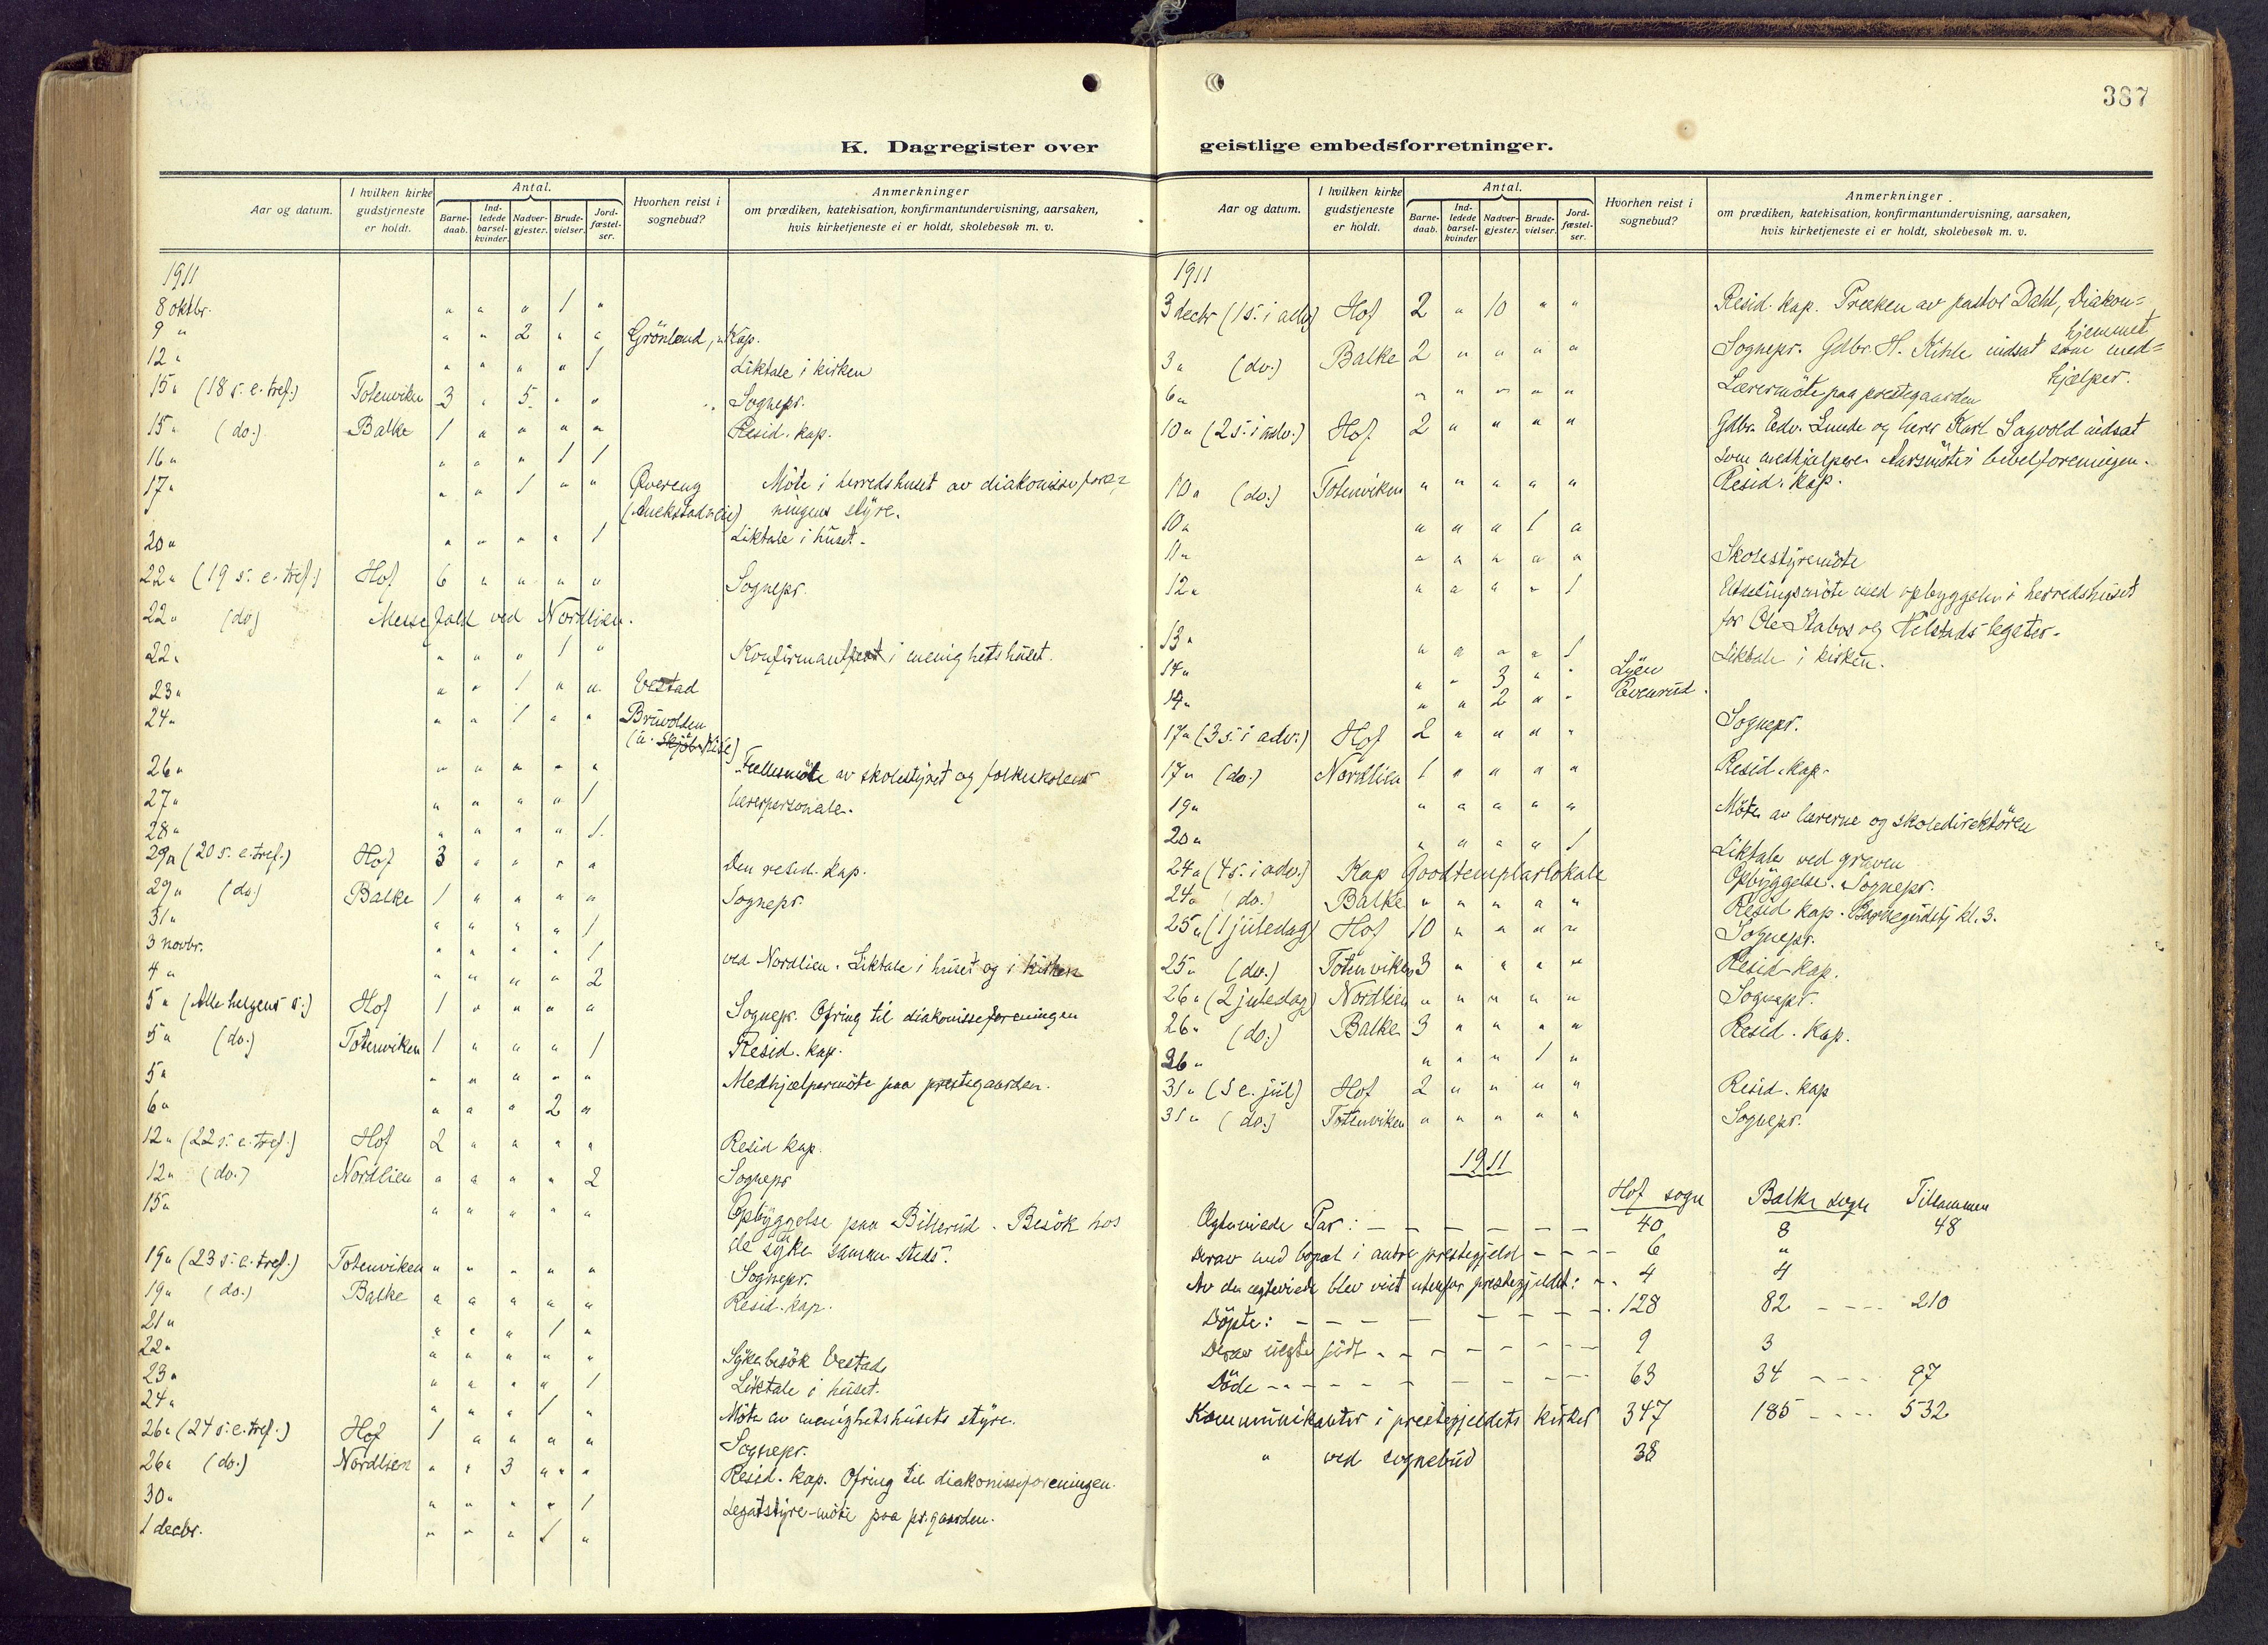 387
K. Dagregister over geistlige embedsforretninger.
Aar og datum. I hvilken kirke gudstjeneste er holdt. Antal. Barne-daab. Ind-ledede barsel-kvinder. Nadver-gjester. Brude-vielser. Jord-fæstel-ser. Hvorhen reist i sognebud? Anmerkninger om prædiken, katekisation, konfirmantundervisning, aarsaken, hvis kirketjeneste ei er holdt, skolebesøk m. v.
1911
8 oktbr. " " " 1 "
9 " " " 2 " " Grönland, Kap.
12 " " " " " 1 Liktale i kirken
15 " (18 s. e. tref.) Totenviken 3 " 5 " " Sognepr.
15 " (do.) Balke 1 " " " " Resid. kap.
16 " " " " 1 1
17 " " " 1 " " Övereng Möte i herredshuset av diakonissefore-
ningens styre.
20 " " " " " 1 Liktale i huset.
22 " (19 s. e. tref.) Hof 6 " " " " Sognepr.
22 " (do) Messefald ved Nordlien.
22 " " " " 1 " Konfirmantfest i menighetshuset.
23 " " " 1 " " Vestad
24 " " " 1 " " Bruvolden
26 " " " " " " Fellesmöte av skolestyret og folkeskolens
27 " " " " " 1 lærerpersonale.
28 " " " " " 1
29 " (20 s. e. tref.) Hof 3 " " " " Den resid. kap.
29 " (do.) Balke 1 " " " " Sognepr.
31 " " " " " 1
3 novbr. " " " " 1
4 " " " " " 2 ved Nordlien. Liktale i huset og i kirken
5 " (Alle helgens s.) Hof 1 " " " " Sognepr. Ofring til diakonisseforeningen
5 " (do.) Totenviken 1 " " " 1 Resid. kap.
5 " " " " " " Medhjælpermöte paa prestegaarden.
6 " " " " 2 "
12 " (22 s. e. tref.) Hof 2 " " " " Resid kap.
12 " (do.) Nordlien " " " " 2 Sognepr
15 " " " " " " Opbyggelse paa Billerud. Besök hos
de syke samme steds.
19 " (23 s. e. tref.) Totenviken " " " " " Sognepr.
19 " (do.) Balke " " " " " Resid. kap.
21 " " " " 1 "
22 " " " " " " Sykebesök Vestad
23 " " " " " 1 Liktale i huset.
24 " " " " 1 " Möte av menighetshusets styre.
26 " (24 s. e. tref.) Hof 1 " " " " Sognepr.
26 " (do.) Nordlien " " 3 " " Resid. kap. Ofring til diakonisseforeningen.
30 " " " " " 1 Legatstyre-möte paa pr.gaarden.
1 decbr. " " " 1 "
Aar og datum. I hvilken kirke gudstjeneste er holdt. Antal. Barne-daab. Ind-ledede barsel-kvinder Nadver-gjester. Brude-vielser. Jord-fæstel-ser. Hvorhen reist i sognebud? Anmerkninger om prædiken, katekisation, konfirmantundervisning, aarsaken, hvis kirketjeneste ei er holdt, skolebesøk m. v.
1911
3 decbr (1 s. i adv) Hof 2 " 10 " " Resid. kap. Præken av pastor Dahl, Diakon-
hjemmet
3 " (do.) Balke 2 " " " " Sognepr. Gdbr. H. Kihle indsat som med-
hjælper.
6 " " " " " " Lærermöte paa prestegaarden
10 " (2 s. i adv.) Hof 2 " " " " Gdbr. Edv. Lunde og lærer Karl Sagvold indsat
som medhjælpere. Aarsmöte i bibelforeningen.
10 " (do.) Totenviken " " " " " Resid. kap.
10 " " " " 1 "
11 " " " " " " Skolestyremöte
12 " " " " " 1 Utdelingsmöte med opbyggelse i herredshuset
for Ole Stabos og Hilstads legater.
13 " " " " " 1 Liktale i kirken.
14 " " " 3 " " Lyen
14 " " " 2 " " Evenrud.
17 " (3 s. i adv.) Hof 2 " " " " Sognepr.
17 " (do.) Nordlien 1 " " " " Resid. kap.
19 " " " " " " Möte av lærerne og skoledirektören
20 " " " " " 1 Liktale ved graven
24 " (4 s. i adv.) Kap Goodtemplarlokale Opbyggelse. Sognepr.
24 " (do.) Balke " " " " " Resid kap. Barnegudstj kl. 3.
25 " (1 juledag) Hof 10 " " " " Sognepr.
25 " (do.) Totenviken 3 " " " " Resid-kap.
26 " (2 juledag) Nordlien " " " " " Sognepr.
26 " (do.) Balke 3 " " " " Resid. kap.
26 " " " " 1 "
31 " (S e. jul) Hof 2 " " " " Resid. kap
31 " (do.) Totenviken " " " " " Sognepr.
1911
Hof sogn Balke sogn Tilsammen
Ægteviede Par: 40 8 48
Derav med bopæl i andre prestegjeld 6 "
Av de ægteviede blev viet utenfor prestegjeldet: 4 4
Döpte: 128 82 210
Derav uegte födt 9 3
Döde 63 34 97
Kommunikanter i prestegjeldets kirker 347 185 532
" ved sognebud 38